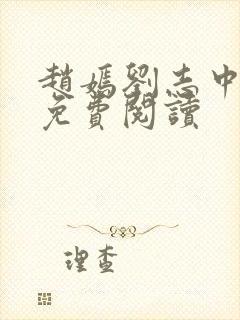 趙媽劉志中
免費閱讀
理查